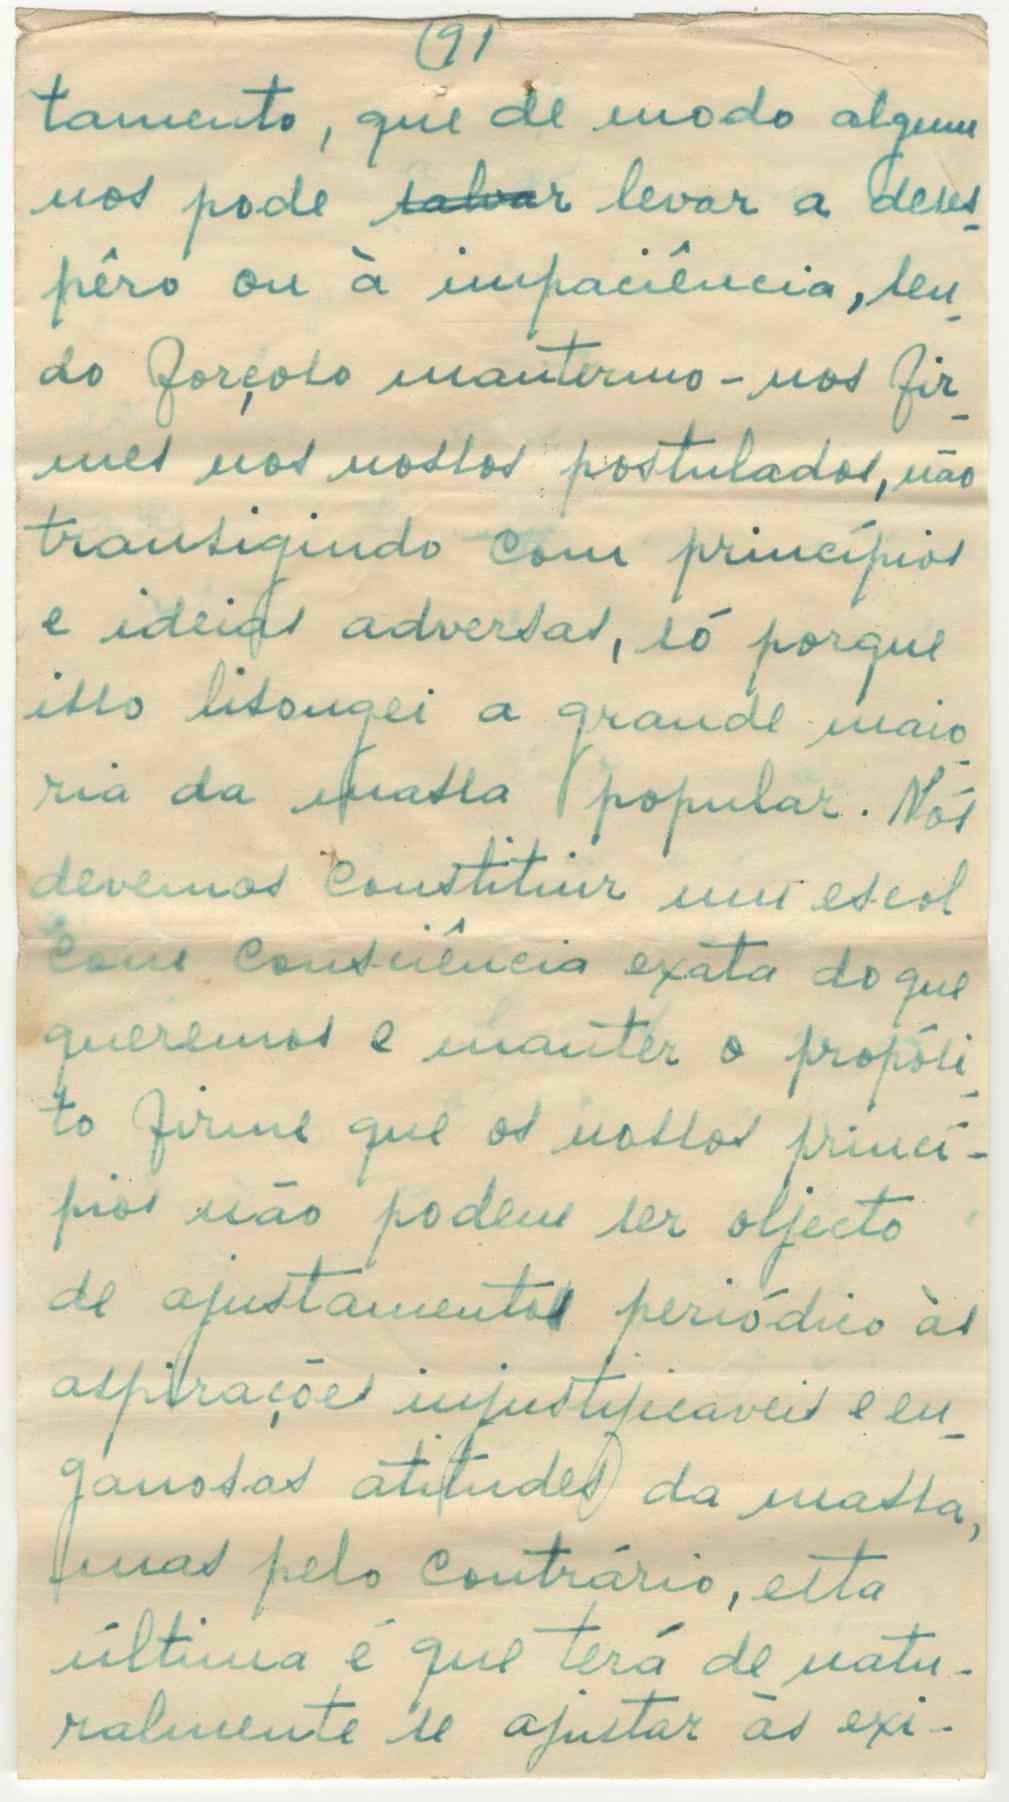 91
tamento, que de modo algum
nos pode salvar levar a deses-
pêro ou à impaciência, sen-
do forçoso mantermo-nos fir-
mes nos nossos postulados, não
transigindo com princípios
e ideias adversas, só porque
isso lisongei a grande maio-
ria da massa popular. Nós
devemos constituir um escol
com consciência exata do que
queremos e manter o propósi-
to firme que os nossos princí-
pios não podem ser objecto
de ajustamentos periódico às
aspirações injustificaveis e en-
ganosas atitudes da massa,
mas pelo contrário, esta
última é que terá de natu-
ralmente se ajustar às exi-